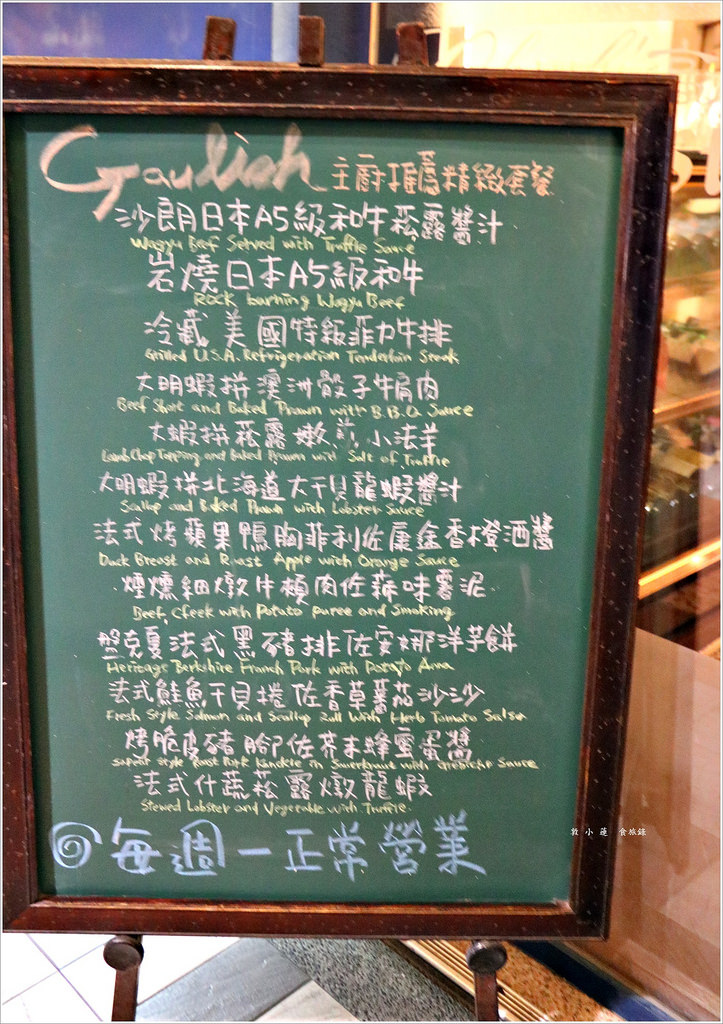 Gaulish 主廚推薦精緻套餐
沙朗日本A5級和牛菘露醬汁
Wagyu Beef Served with Truffle Sauce
岩燒日本A5級和牛
Rock burning Wagyu Beef
冷藏美國特級菲力牛排
Grilled U.S.A. Refrigeration Tenderloin Steak
大明蝦拼澳洲骰子牛肩肉
Beef Shot and Baked Prawn with B.B.Q Sauce
大蝦拼菘露嫩煎小法羊
Lamb Chop Topping and Baked Prawn with Salt of Truffle
大明蝦拼北海道大干貝龍蝦醬汁
Scallop and Baked Prawn with Lobster Sauce
法式烤蘋果鴨胸菲利佐康途香橙酒醬
Duck Breast and Roast Apple with Orange Sauce
煙燻細燉牛頰肉佐蒜味薯泥
Beef Cfeek with Potato puree and Smoking
盤克夏法式黑豬排佐安娜洋芋餅
Heritage Berkshire Franch Pork with Potato Anna
法式鮭魚干貝捲佐香草蕃茄沙沙
Fresh Style Salmon and Scallop Roll With Herb Tomato Salsa
烤脆皮豬腳佐芥末蜂蜜蛋醬
Style Roast Pork Knuckle in with Sauce
法式什蔬菘露燉龍蝦
Stewed Lobster and Vegetable with Truffle
每週一正常營業
敦小蓮 食旅錄